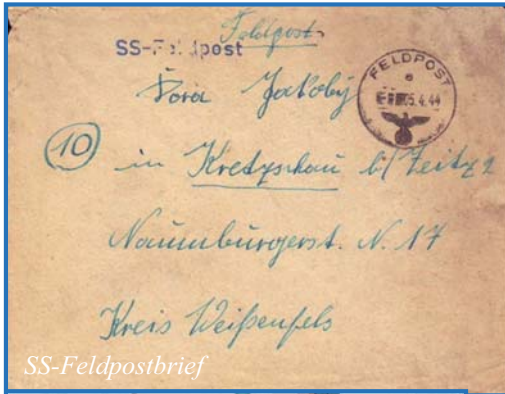 Feldpost.
SS-Feldpost
FELDPOST
e
5.4.44
Dora Jakoby
10
in Kretzschau b/Zeitz 2
Naumburgerst. N. 17
Kreis Weißenfels
SS-Feldpostbrief